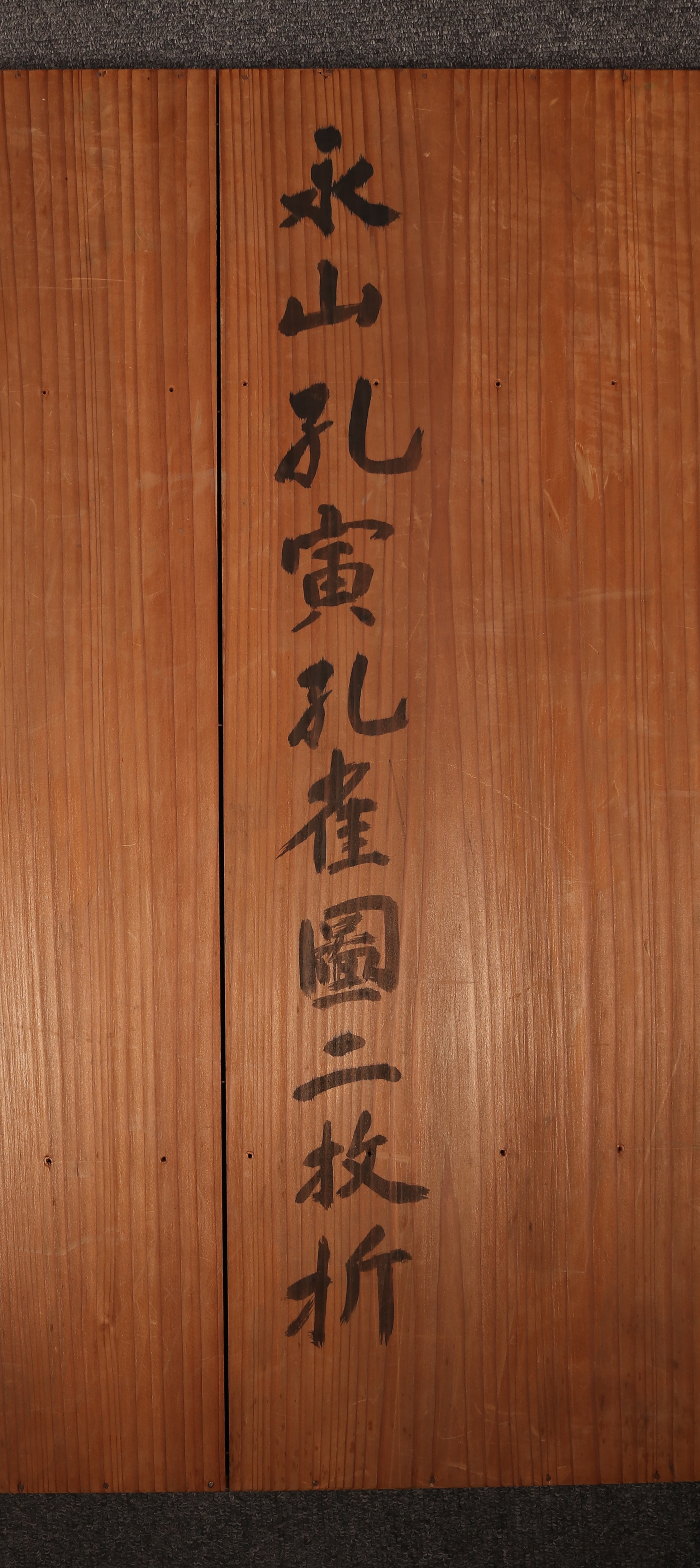 永山孔寅孔雀圖二枚折